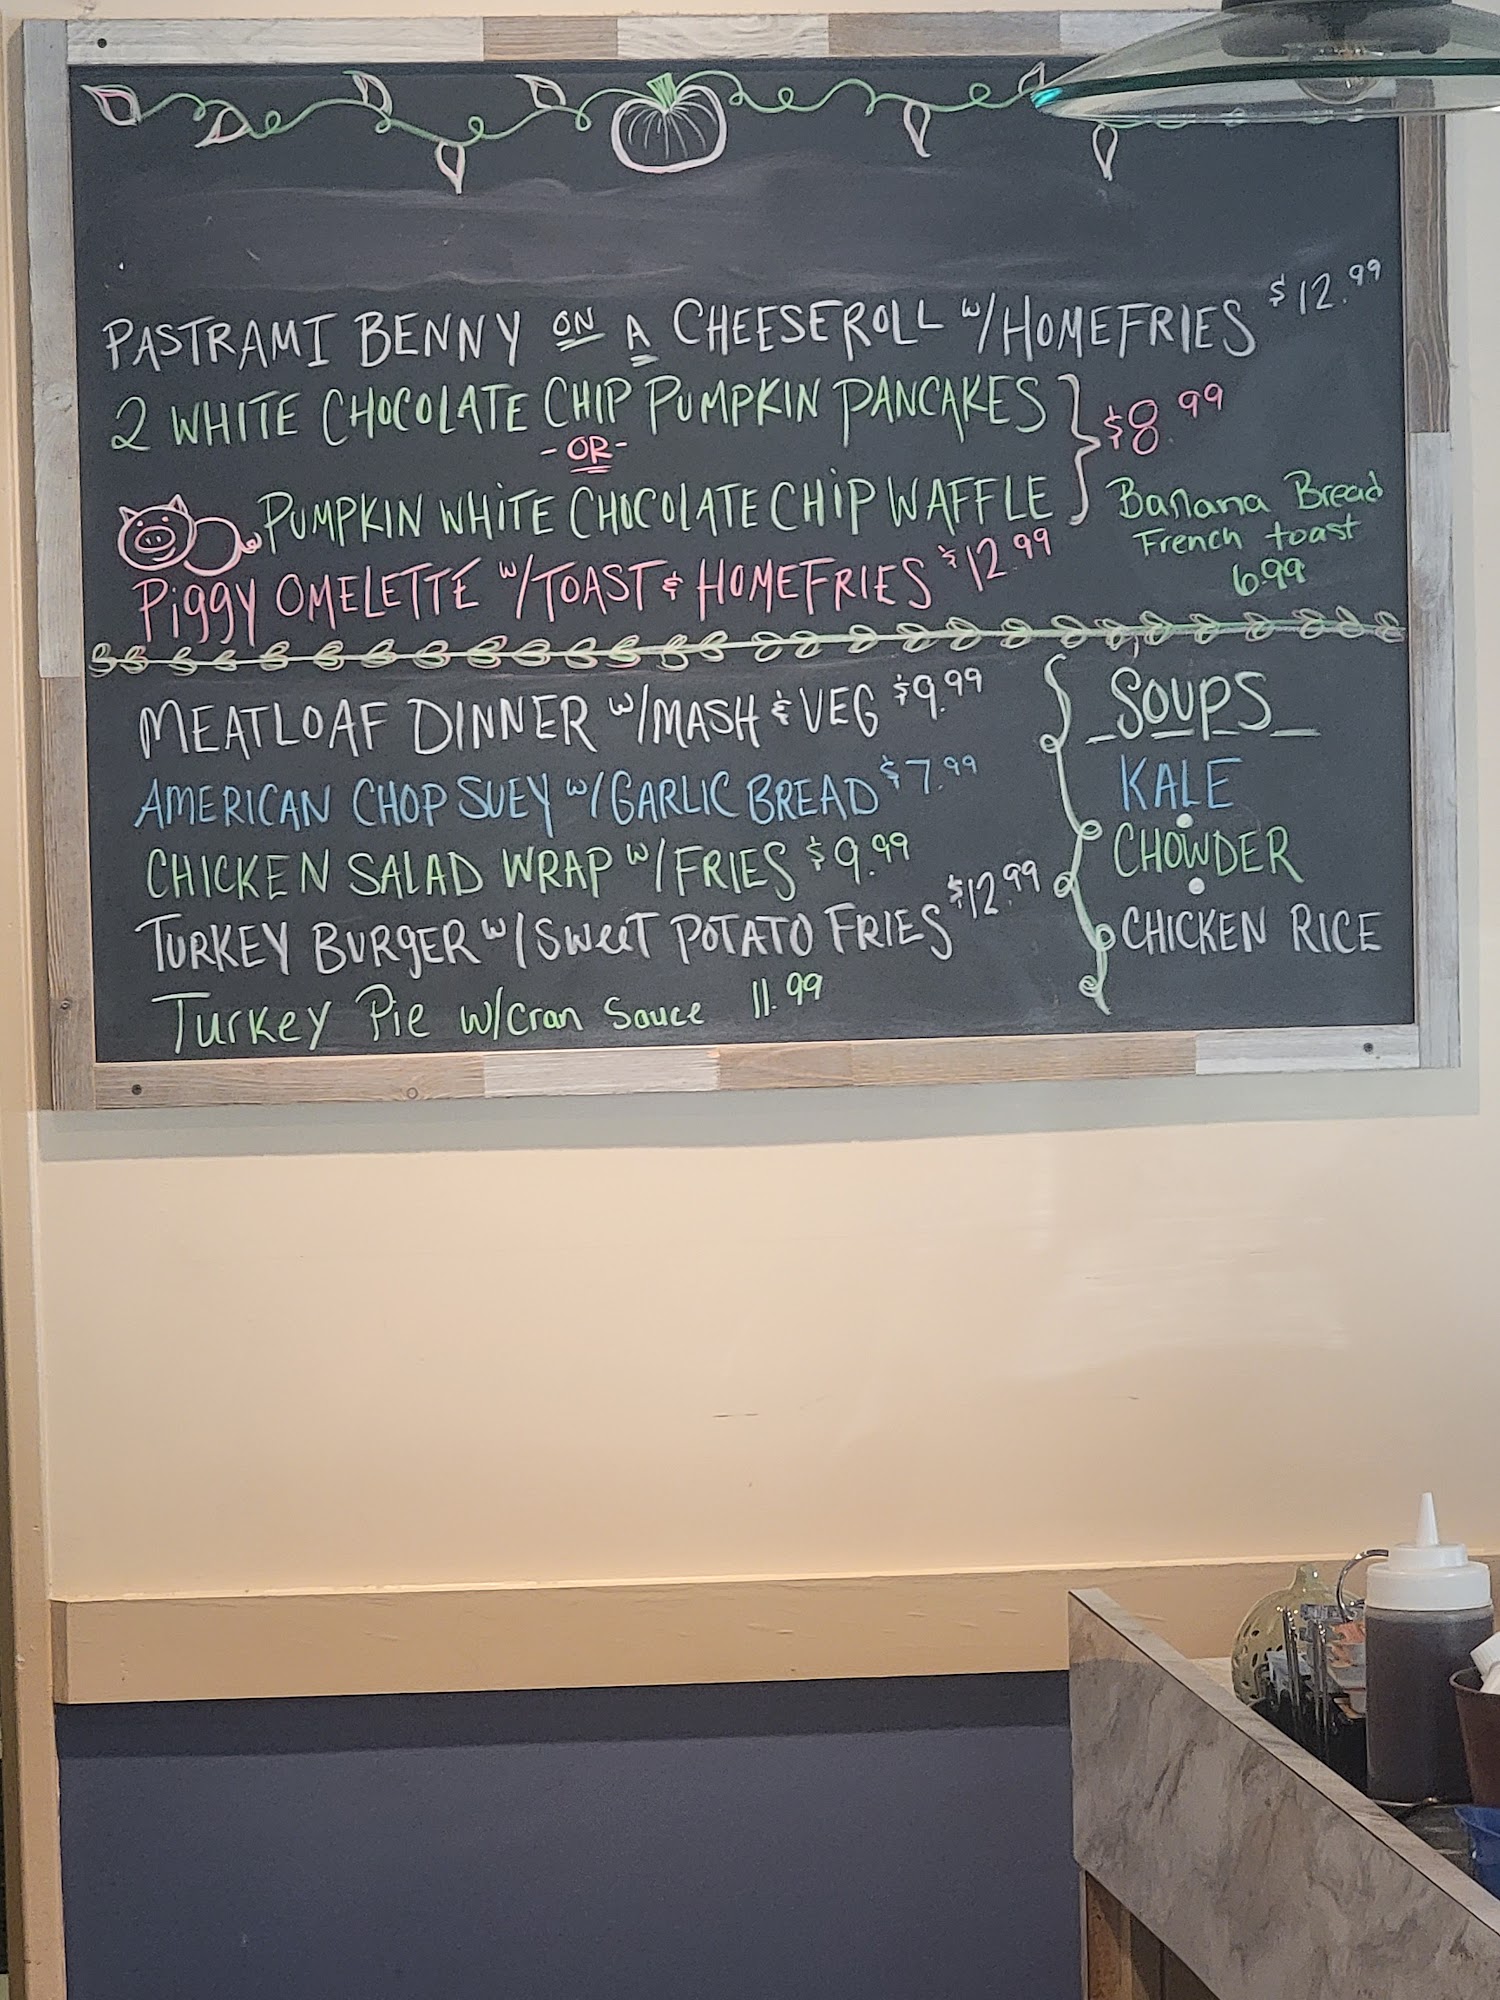 PASTRAMI BENNY ON A CHEESEROLL w/HOMEFRIES $12.99
2 WHITE CHOCOLATE CHIP PUMPKIN PANCAKES
-OR-
$8.99
PUMPKIN WHITE CHOCOLATE CHIP WAFFLE
Piggy OMELETTE w/TOAST & HOMEFRIES $12.99
Banana Bread
French toast
6.99
MEATLOAF DINNER w/MASH & VEG $9.99
AMERICAN CHOP SUEY w/GARLIC BREAD $7.99
CHICKEN SALAD WRAP w/FRIES $9.99
TURKEY BURGER w/SWEET POTATO FRIES $12.99
Turkey Pie w/Cran Sauce 11.99
SOUPS
KALE
CHOWDER
CHICKEN RICE